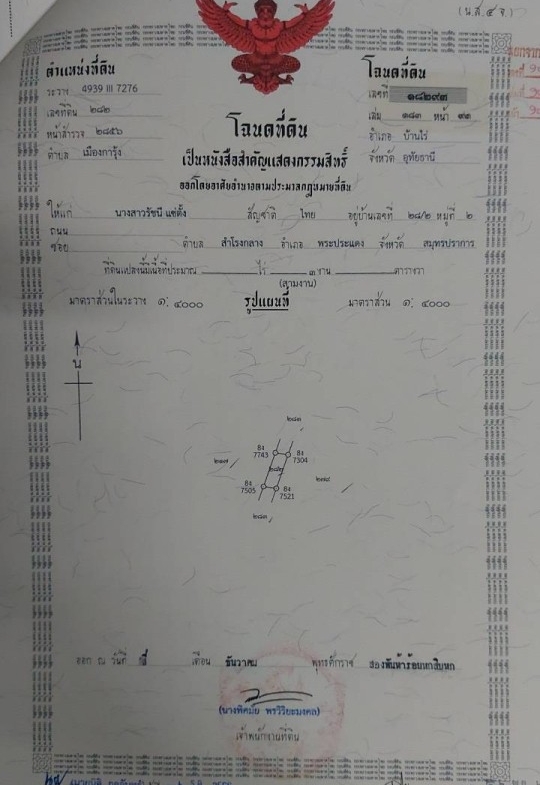 (น.ส.๔ จ.)
ตำแหน่งที่ดิน
ระวาง 4939 III 7276
เลขที่ดิน ๒๘๒
หน้าสำรวจ ๒๘๕๖
ตำบล เมืองการุ้ง
โฉนดที่ดิน
เลขที่ ๑๘๒๙๓
เล่ม ๑๘๓ หน้า ๙๓
อำเภอ บ้านไร่
จังหวัด อุทัยธานี
โฉนดที่ดิน
เป็นหนังสือสำคัญแสดงกรรมสิทธิ์
ออกโดยอาศัยอำนาจตามประมวลกฎหมายที่ดิน
ให้แก่ นางสาวรัชนี แซ่ตั้ง สัญชาติ ไทย อยู่บ้านเลขที่ ๒๘/๒ หมู่ที่ ๒
ถนน
ซอย ตำบล สำโรงกลาง อำเภอ พระประแดง จังหวัด สมุทรปราการ
ที่ดินแปลงนี้มีเนื้อที่ประมาณ ไร่ ๓ งาน ตารางวา
(สามงาน)
มาตราส่วนในระวาง ๑: ๔๐๐๐ รูปแผนที่ มาตราส่วน ๑: ๔๐๐๐
น
๒๘๓
8ง 7743
8ง 7304
๒๘๒
8ง 7505
8ง 7521
ออก ณ วันที่ เดือน ธันวาคม พุทธศักราช สองพันห้าร้อยหกสิบหก
เจ้าพนักงานที่ดิน